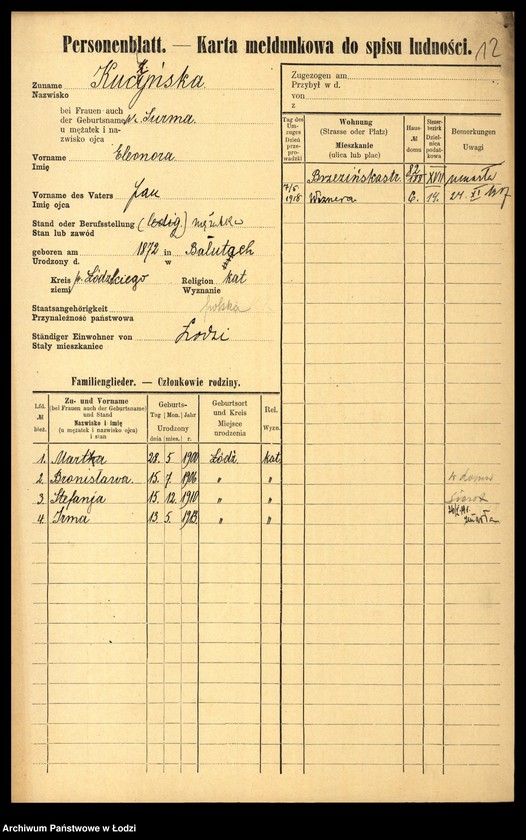 Personenblatt. — Karta meldunkowa do spisu ludności. 12
Zuname Kuczyńska
Nazwisko
bei Frauen auch
der Geburtsname Surma
u mężatek i na-
zwisko ojca
Vorname Eleonora
Imię
Vorname des Vaters Jan
Imię ojca
Stand oder Berufsstellung (ledig) mężatka
Stan lub zawód
geboren am 1872 in Bałutach
Urodzony d. w
Kreis p. Łódzkiego Religion kat
ziemi Wyznanie
Staatsangehörigkeit polska
Przynależność państwowa
Ständiger Einwohner von Łodzi
Stały mieszkaniec
Familienglieder. — Członkowie rodziny.
Lfd. № bież.
Zu- und Vorname
(bei Frauen auch der Geburtsname)
und Stand
Nazwisko i imię
(u mężatek i nazwisko ojca)
i stan
Geburts-
Tag Mon. Jahr
Urodzony
dnia mies. r.
Geburtsort
und Kreis
Miejsce
urodzenia
Rel.
Wyzn.
1. Martha 28. 5 1900 Łódź kat
2. Bronisława. 15. 7. 1906 " "
3. Stefanja 15. 12. 1910 " "
4. Irma 13. 5. 1913 " "
Zugezogen am
Przybył w d.
von
z
Tag des
Um-
zuges
Dzień
prze-
prowadzki
Wohnung
(Strasse oder Platz)
Mieszkanie
(ulica lub plac)
Haus-
№
domu
Steuer-
bezirk
Dziel-
nica po-
datkowa
Bemerkungen
Uwagi
Brzezińskastr. XVII umarła
7/5 1918 Wiznera 6. 14. 24. XI 1917
zmarła
Archiwum Państwowe w Łodzi